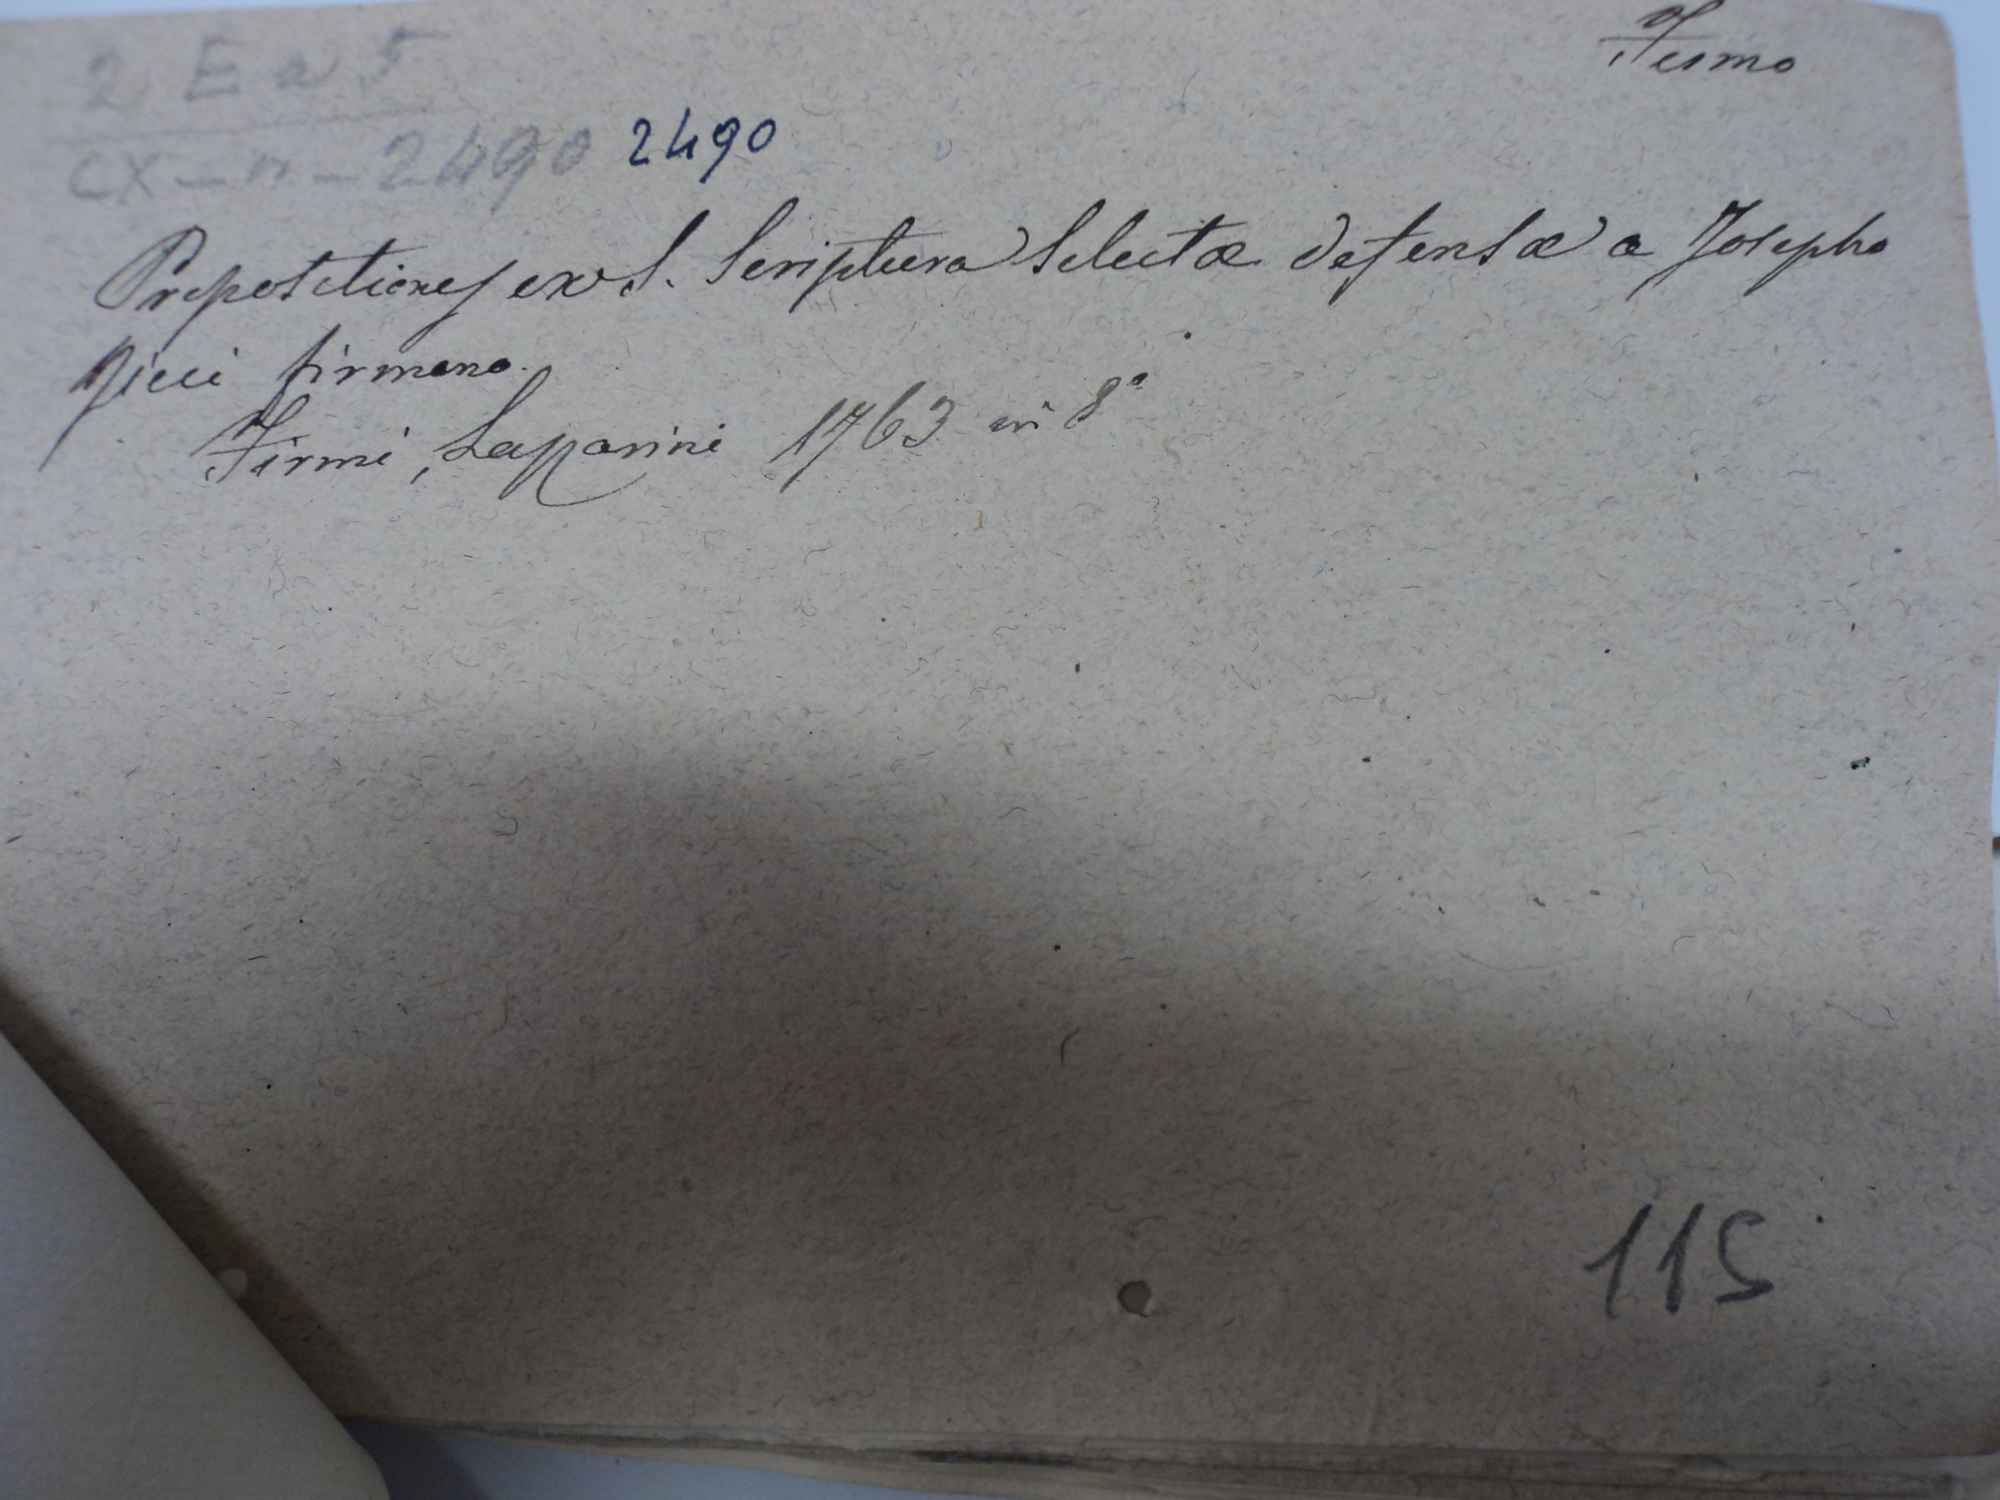 Fermo
2 E a 5
CX - n - 2490 2490
Propositiones ex S. Scriptura Selectæ defensæ a Josepho
firmano.
Firmi, Lazzarini 1763 in 8°
115